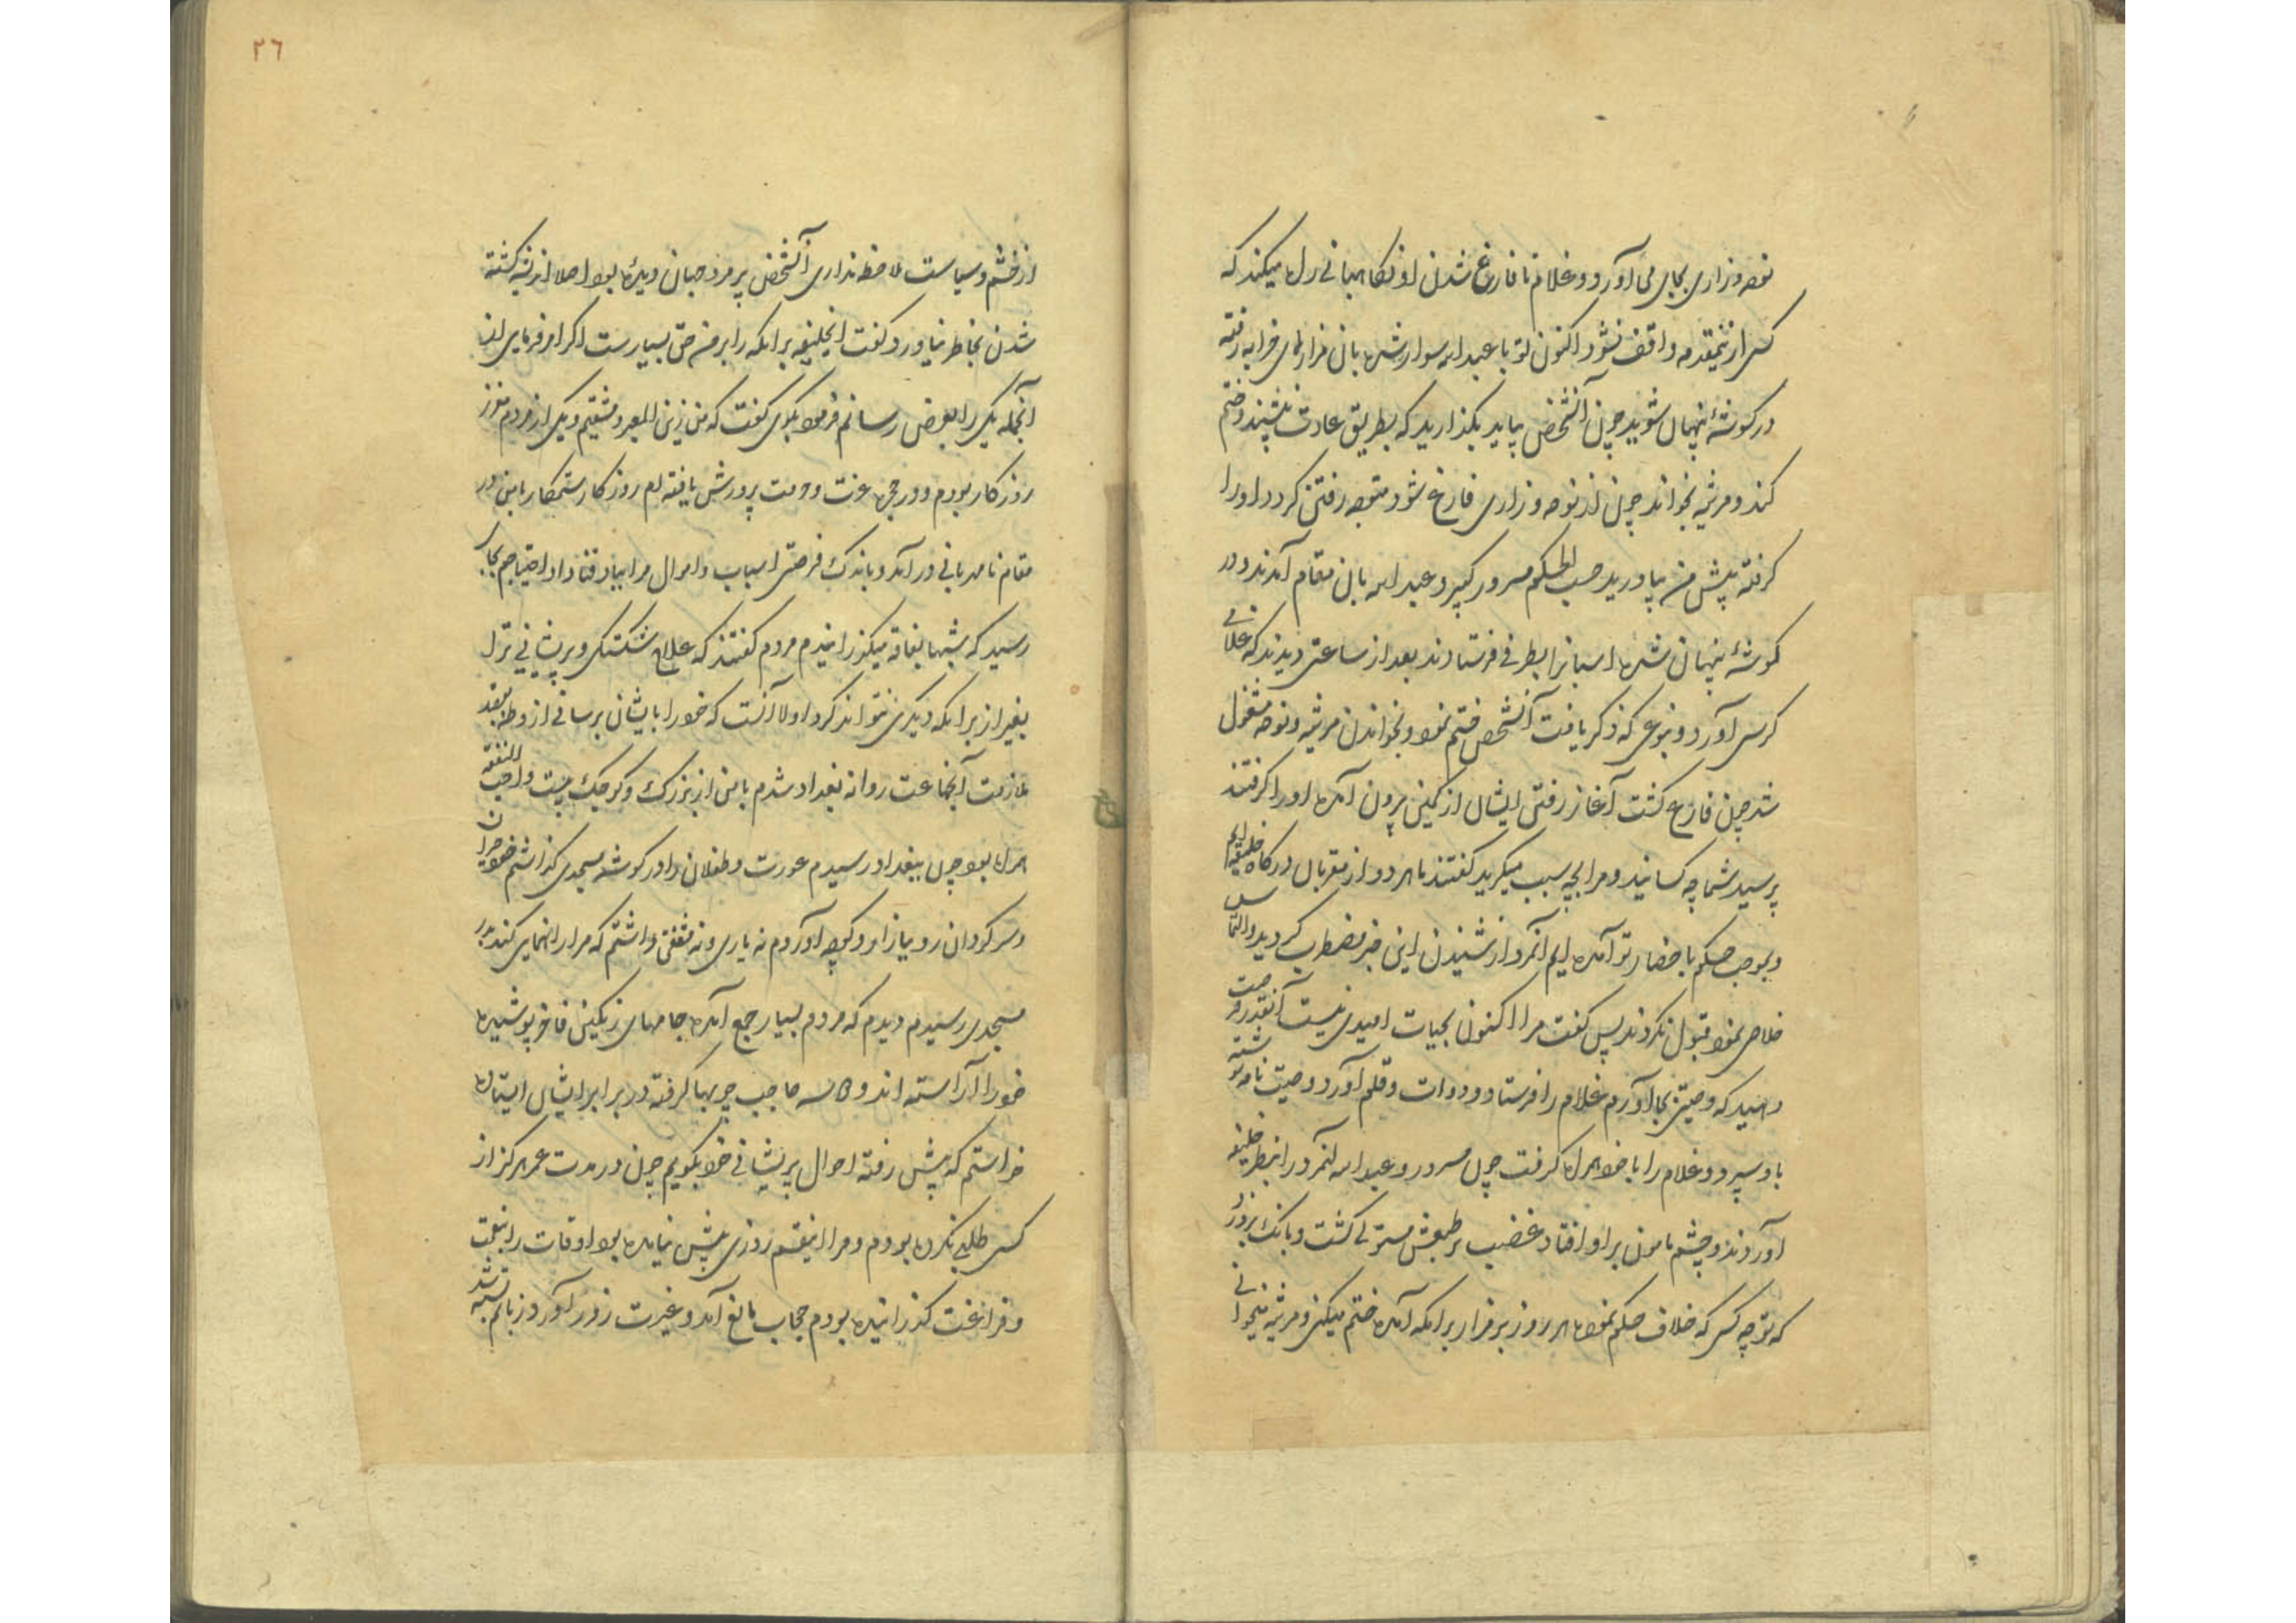 نوحه و زاری بجای می آورد و غلام تا فارغ شدن او نگاهبانی راه میکند که
کسی ازینمقدمه واقف نشود اکنون تو با عبدالله سوار شده بان مزارهای خرابه رفته
در گوشهٔ پنهان شوید چون آنشخص بیاید بگذارید که بطریق عادت بنشیند و ختم
کند و مرثیه بخواند چون از نوحه و زاری فارغ شود متوجه رفتن گردد او را
گرفته پیش من بیاورید حسب الحکم مسرور کبیر و عبدالله بان مقام آمدند و در
گوشهٔ پنهان شده اسبانرا بطرفی فرستادند بعد از ساعتی دیدند که غلامی
کرسی آورد و بنوعی که ذکر یافت آنشخص ختم نمود و بخواندن مرثیه و نوحه مشغول
شد چون فارغ گشت آغاز رفتن ایشان از کمین بیرون آمده او را گرفتند
پرسید شما چه کسانید و مرا بچه سبب میگیرید گفتند ما هر دو از مقربان درگاه خلیفه ایم
و بموجب حکم باحضار تو آمده ایم آنمرد از شنیدن این خبر مضطرب گردید و التماس
خلاصی نمود قبول نکردند پس گفت مرا اکنون بحیات امیدی نیست آنقدر فرصت
دهید که وصیتی بجا آورم غلام را فرستاد و دوات و قلم آورد و وصیت نامه نوشته
باو سپرد و غلام را با خود همراه گرفت چون مسرور و عبدالله آنمرد را بنظر خلیفه
آوردند و چشم مامون بر او افتاد غضب بر طبعش مستولی گشت و بانک بر وی زد
که تو چه کسی که خلاف حکم نموده هر روز بر مزار برامکه آمده ختم میکنی و مرثیه میخوانی
۲۶
از خشم و سیاست ملاحظه نداری آنشخص پیر مرد جهان دیده بود اصلا اندیشه کشته
شدن بخاطر نیاورد و گفت ایخلیفه برامکه را بر من حق بسیارست اگر امر فرمایی از
آنجمله یکی را بعرض رسانم فرمود بگوی گفت که من زین المغیره دمشقیم و یکی از مردم معزز
روزگار بودم و در حجره عزت و حرمت پرورش یافته ام روزگار ستمکار با من در
مقام نامهربانی در آمد و باندک فرصتی اسباب و اموال مرا بباد فنا داد احتیاجم بجایی
رسید که شبها بفاقه میگذرانیدم مردم گفتند که علاج شکستگی و پریشانی ترا
بغیر از برامکه دیگری نتواند کرد اولا آنست که خود را بایشان برسانی از وطن بقصد
ملازمت آنجماعت روانه بغداد شدم با من از بزرگ و کوچک بیست واجب النفقه
همراه بود چون ببغداد رسیدم عورت و طفلان را در گوشه مسجدی گذاشتم خود حیران
و سرگردان رو ببازار و کوچه آوردم نه یاری و نه مشفقی داشتم که مرا راهنمایی کند بدر
مسجدی رسیدم دیدم که مردم بسیار جمع آمده جامهای رنگین فاخر پوشیده
خود را آراسته اند و کاسه حاجب چوبها گرفته در برابر ایشان ایستاده
خواستم که پیش رفته احوال پریشانی خود بگویم چون در مدت عمر هرگز از
کسی طلبی نکرده بودم و مرا اینقسم روزی پیش نیامده بود اوقات را بنعمت
و فراغت گذرانیده بودم حجاب مانع آمد و غیرت زور آورد زبانم بسته شد